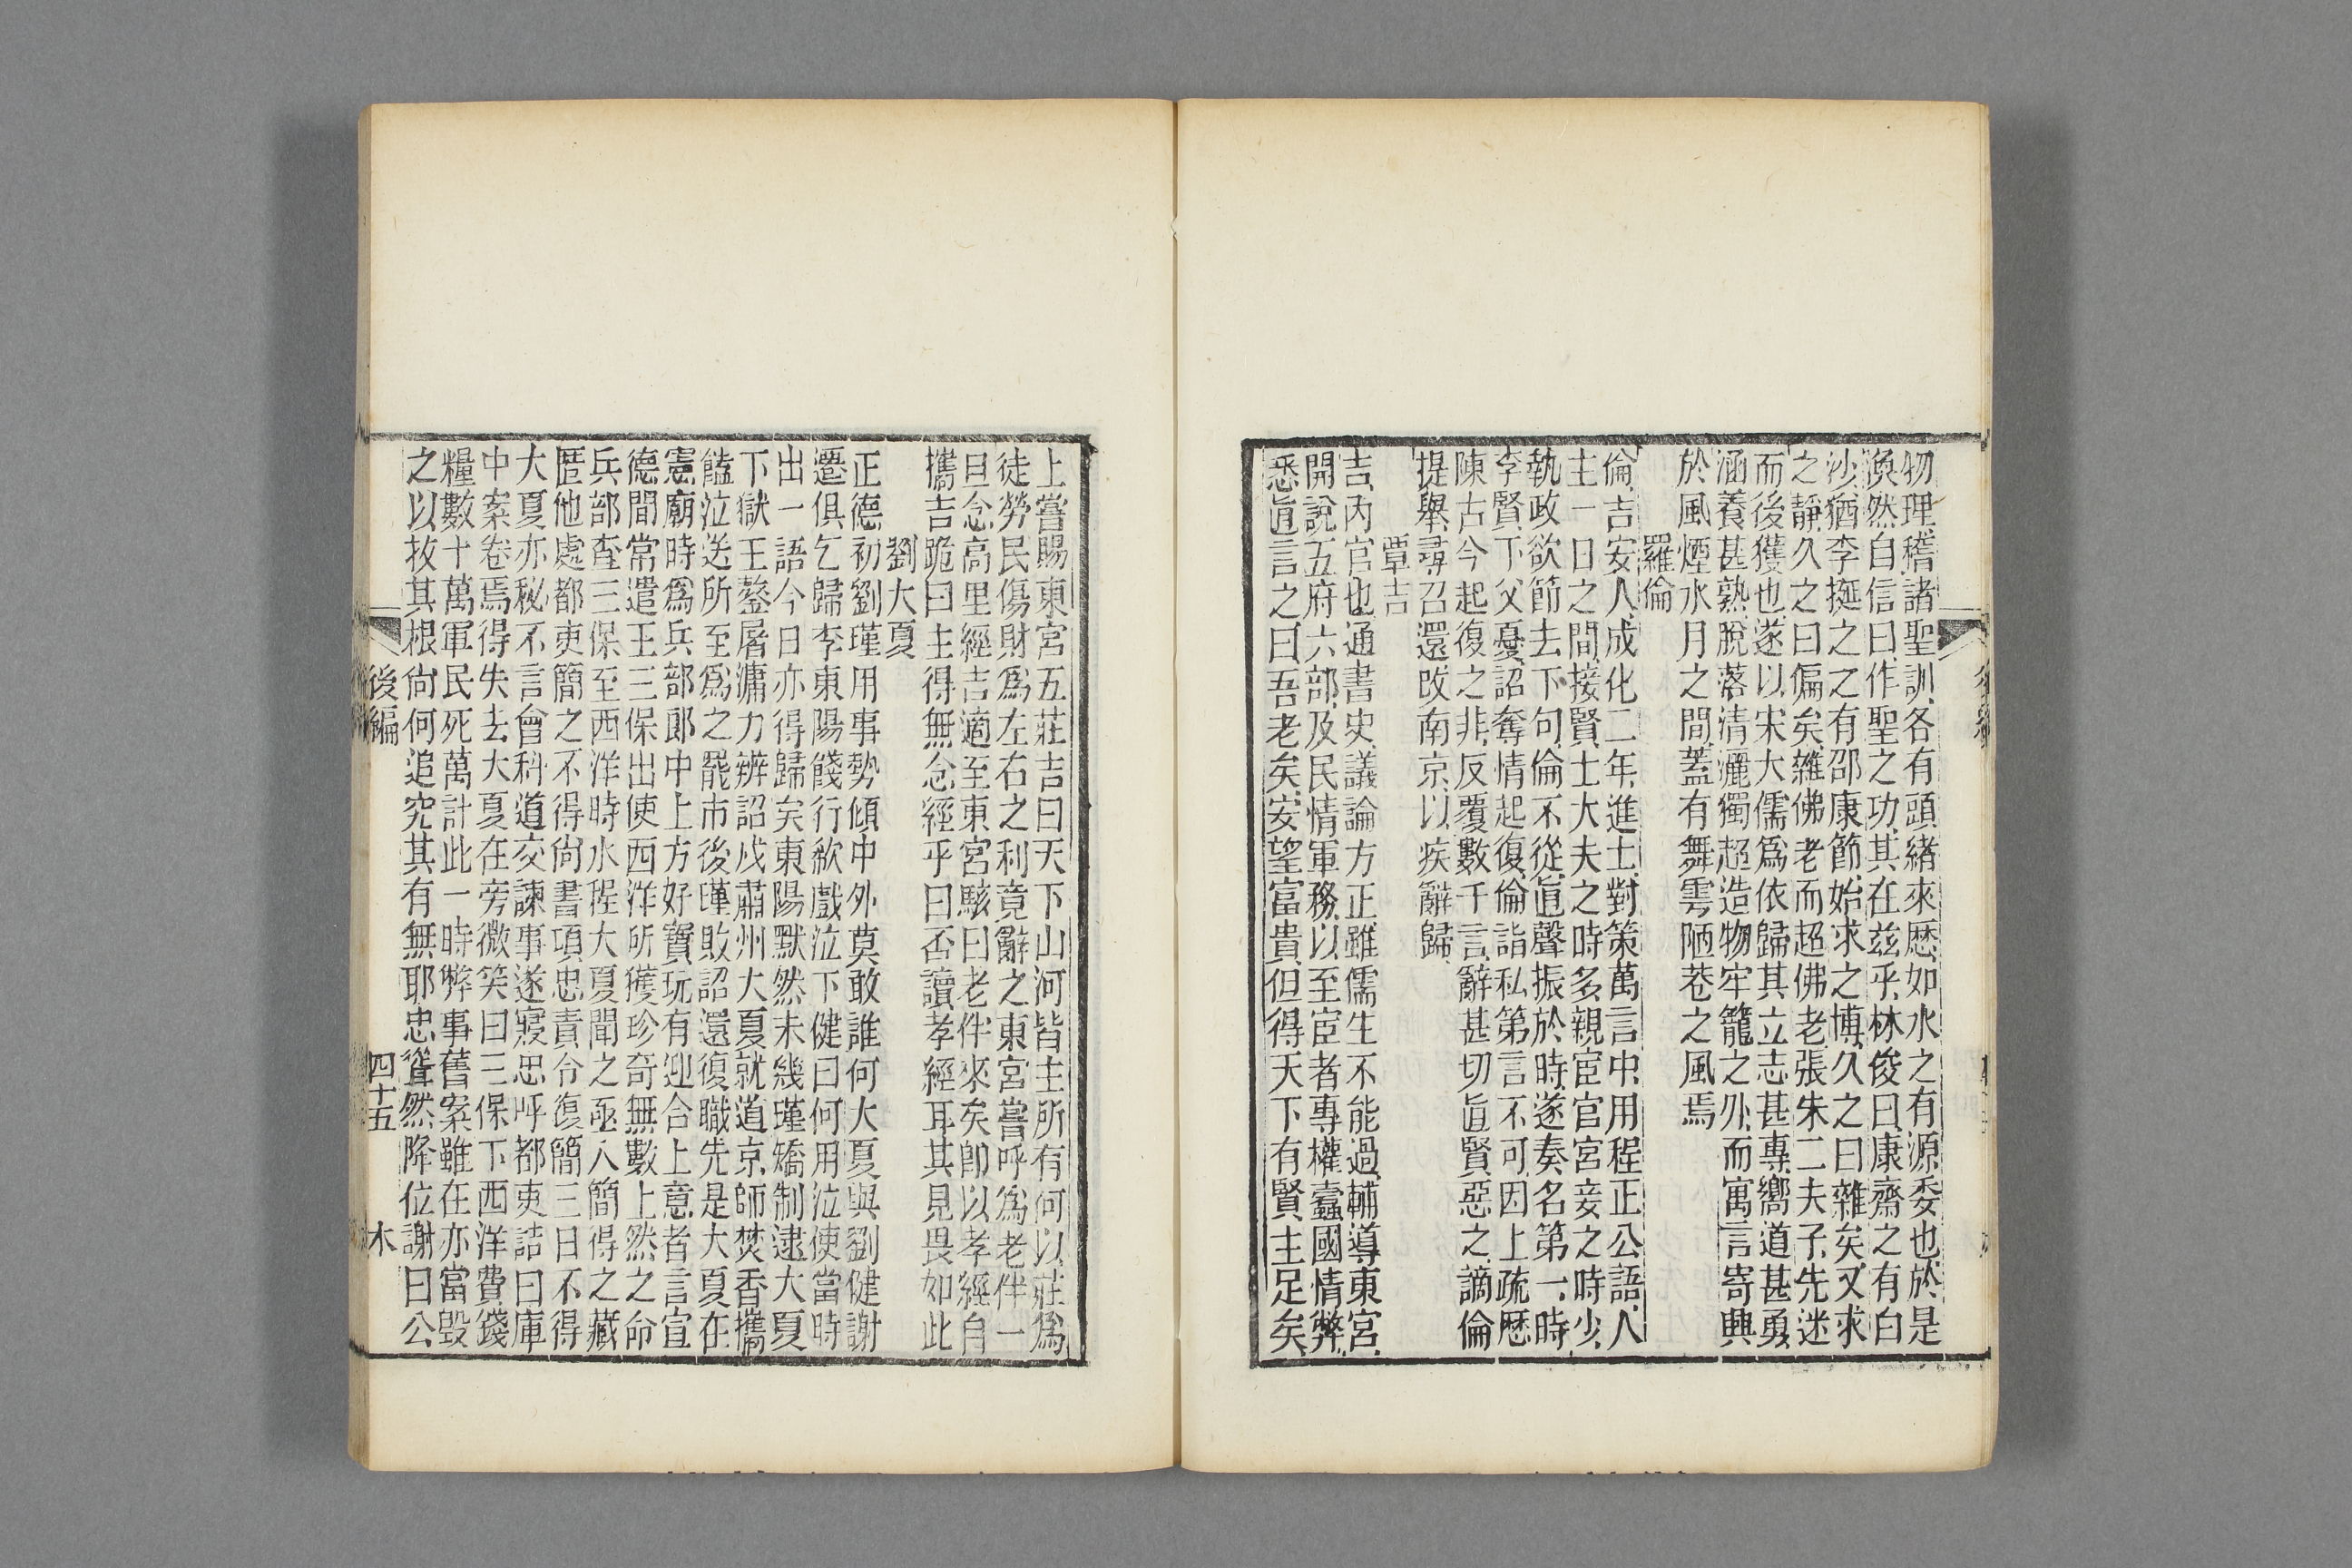 物理稽諸聖訓各有頭緒來歷如水之有源委也於是
渙然自信曰作聖之功其在兹乎林俊曰康齋之有白
沙猶李挻之之有邵康節始求之博久之曰雜矣又求
之靜久之曰偏矣雜佛老而超佛老張朱二夫子先迷
而後獲也遂以宋大儒爲依歸其立志甚專嚮道甚勇
涵養甚熟脫落清灑獨超造物牢籠之外而寓言寄興
於風煙水月之間蓋有舞雩陋巷之風焉
羅倫
倫吉安人成化二年進士對策萬言中用程正公語人
主一日之間接賢士大夫之時多親宦官宮妾之時少
執政欲節去下句倫不從眞聲振於時遂奏名第一時
李賢下父憂詔奪情起復倫詣私第言不可因上疏歷
陳古今起復之非反覆數千言辭甚切眞賢惡之謫倫
提舉尋召還改南京以疾辭歸
覃吉
吉內官也通書史議論方正雖儒生不能過輔導東宮
開說五府六部及民情軍務以至宦者專權蠹國情弊
悉眞言之曰吾老矣安望富貴但得天下有賢主足矣
上嘗賜東宮五莊吉曰天下山河皆主所有何以莊爲
徒勞民傷財爲左右之利竟辭之東宮嘗呼爲老伴一
日念高里經吉適至東宮駭曰老伴來矣卽以孝經自
攜吉跪曰主得無念經乎曰否讀孝經耳其見畏如此
劉大夏
正德初劉瑾用事勢傾中外莫敢誰何大夏與劉健謝
遷俱乞歸李東陽餞行歔戲泣下健曰何用泣使當時
出一語今日亦得歸矣東陽默然未幾瑾矯制逮大夏
下獄王鏊屠滽力辨詔戍肅州大夏就道京師焚香攜
饁泣送所至爲之罷市後瑾敗詔還復職先是大夏在
憲廟時爲兵部郎中上方好寶玩有迎合上意者言宣
德間常遣王三保出使西洋所獲珍奇無數上然之命
兵部查三保至西洋時水程大夏聞之亟入簡得之藏
匿他處都吏簡之不得尙書項忠責令復簡三日不得
大夏亦秘不言會科道交諫事遂寢忠呼都吏詰曰庫
中案卷焉得失去大夏在旁微笑曰三保下西洋費錢
糧數十萬軍民死萬計此一時弊事舊案雖在亦當毀
之以拔其根尙何追究其有無耶忠聳然降位謝曰公
後編
四十五
木